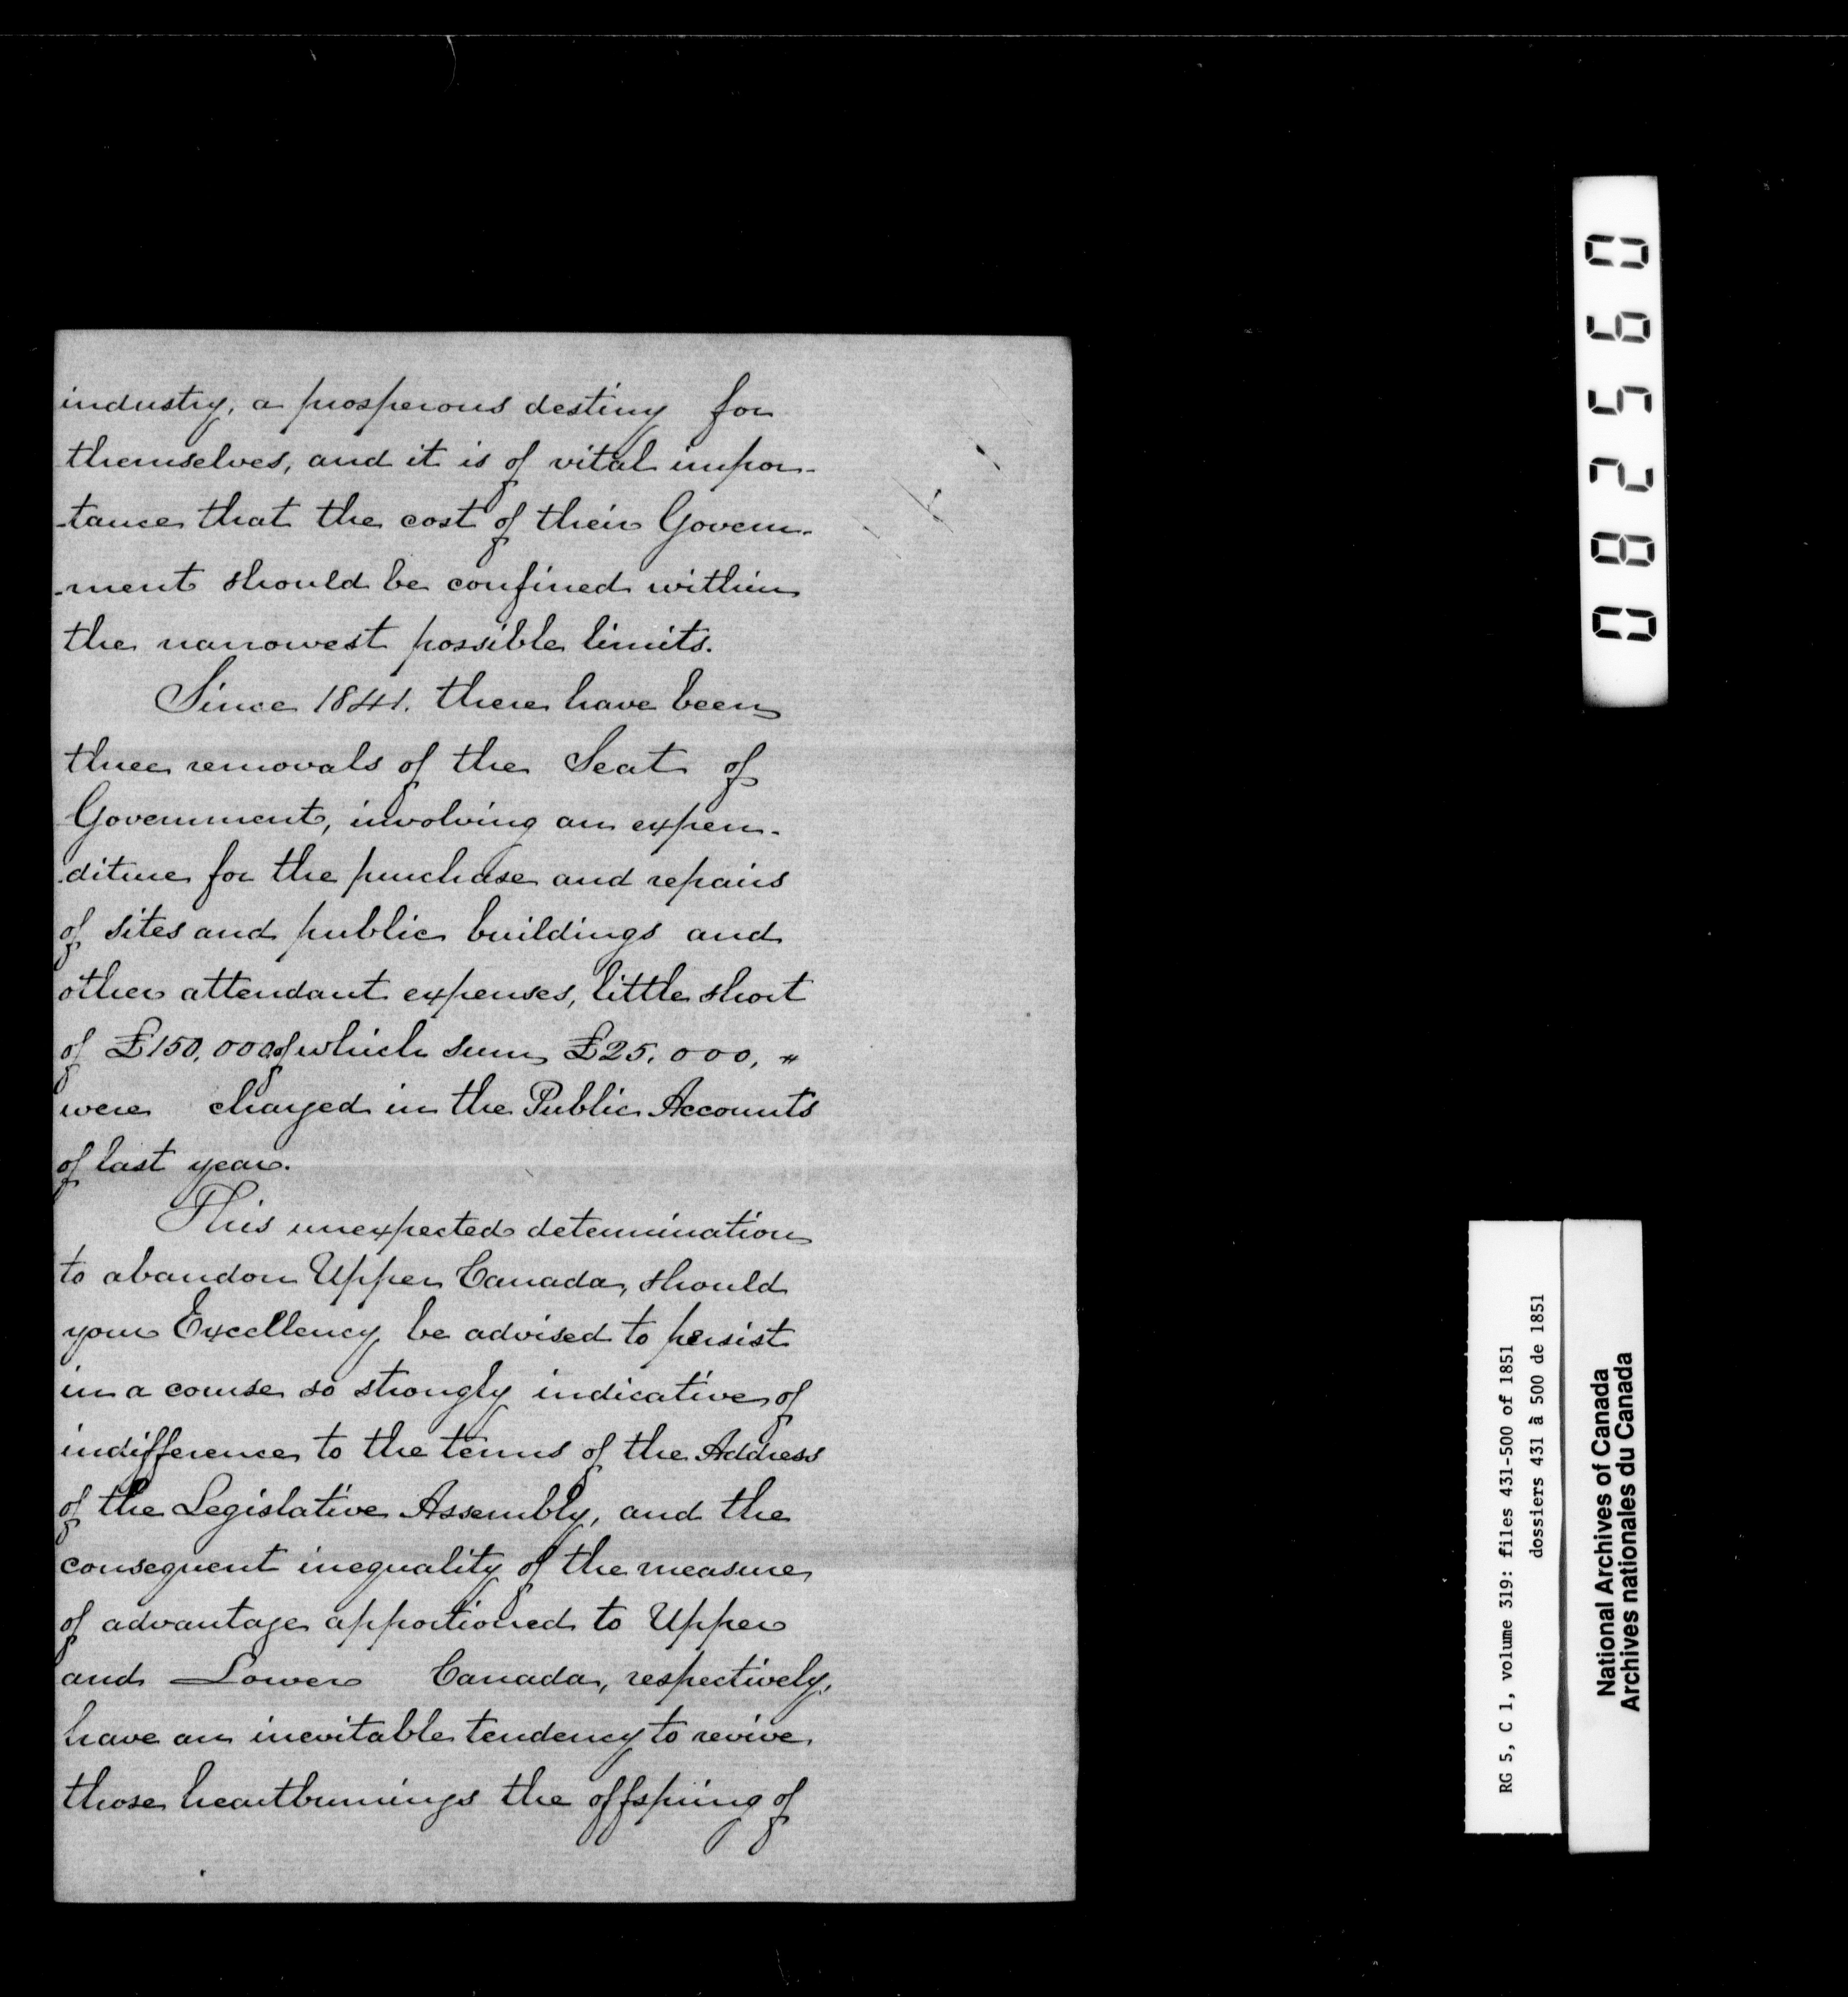 industry, a prosperous destiny for
themselves, and it is of vital impor-
-tance that the cost of their Govern-
-ment should be confined within
the narrowest possible limits.
Since 1841. there have been
three removals of the Seat of
Government, involving an expen-
diture for the purchase and repairs
of sites and public buildings and
other attendant expenses, little short
of £150,000 of which sum £25,000, "
were charged in the Public Accounts
of last year.
This unexpected determination
to abandon Upper Canada, should
your Excellency be advised to persist
in a course so strongly indicative of
indifference to the terms of the Address
of the Legislative Assembly, and the
consequent inequality of the measure
of advantage apportioned to Upper
and Lower Canada, respectively,
have an inevitable tendency to revive
those heartburnings the offspring of
082560
RG 5, C 1, volume 319: files 431-500 of 1851
dossiers 431 à 500 de 1851
National Archives of Canada
Archives nationales du Canada